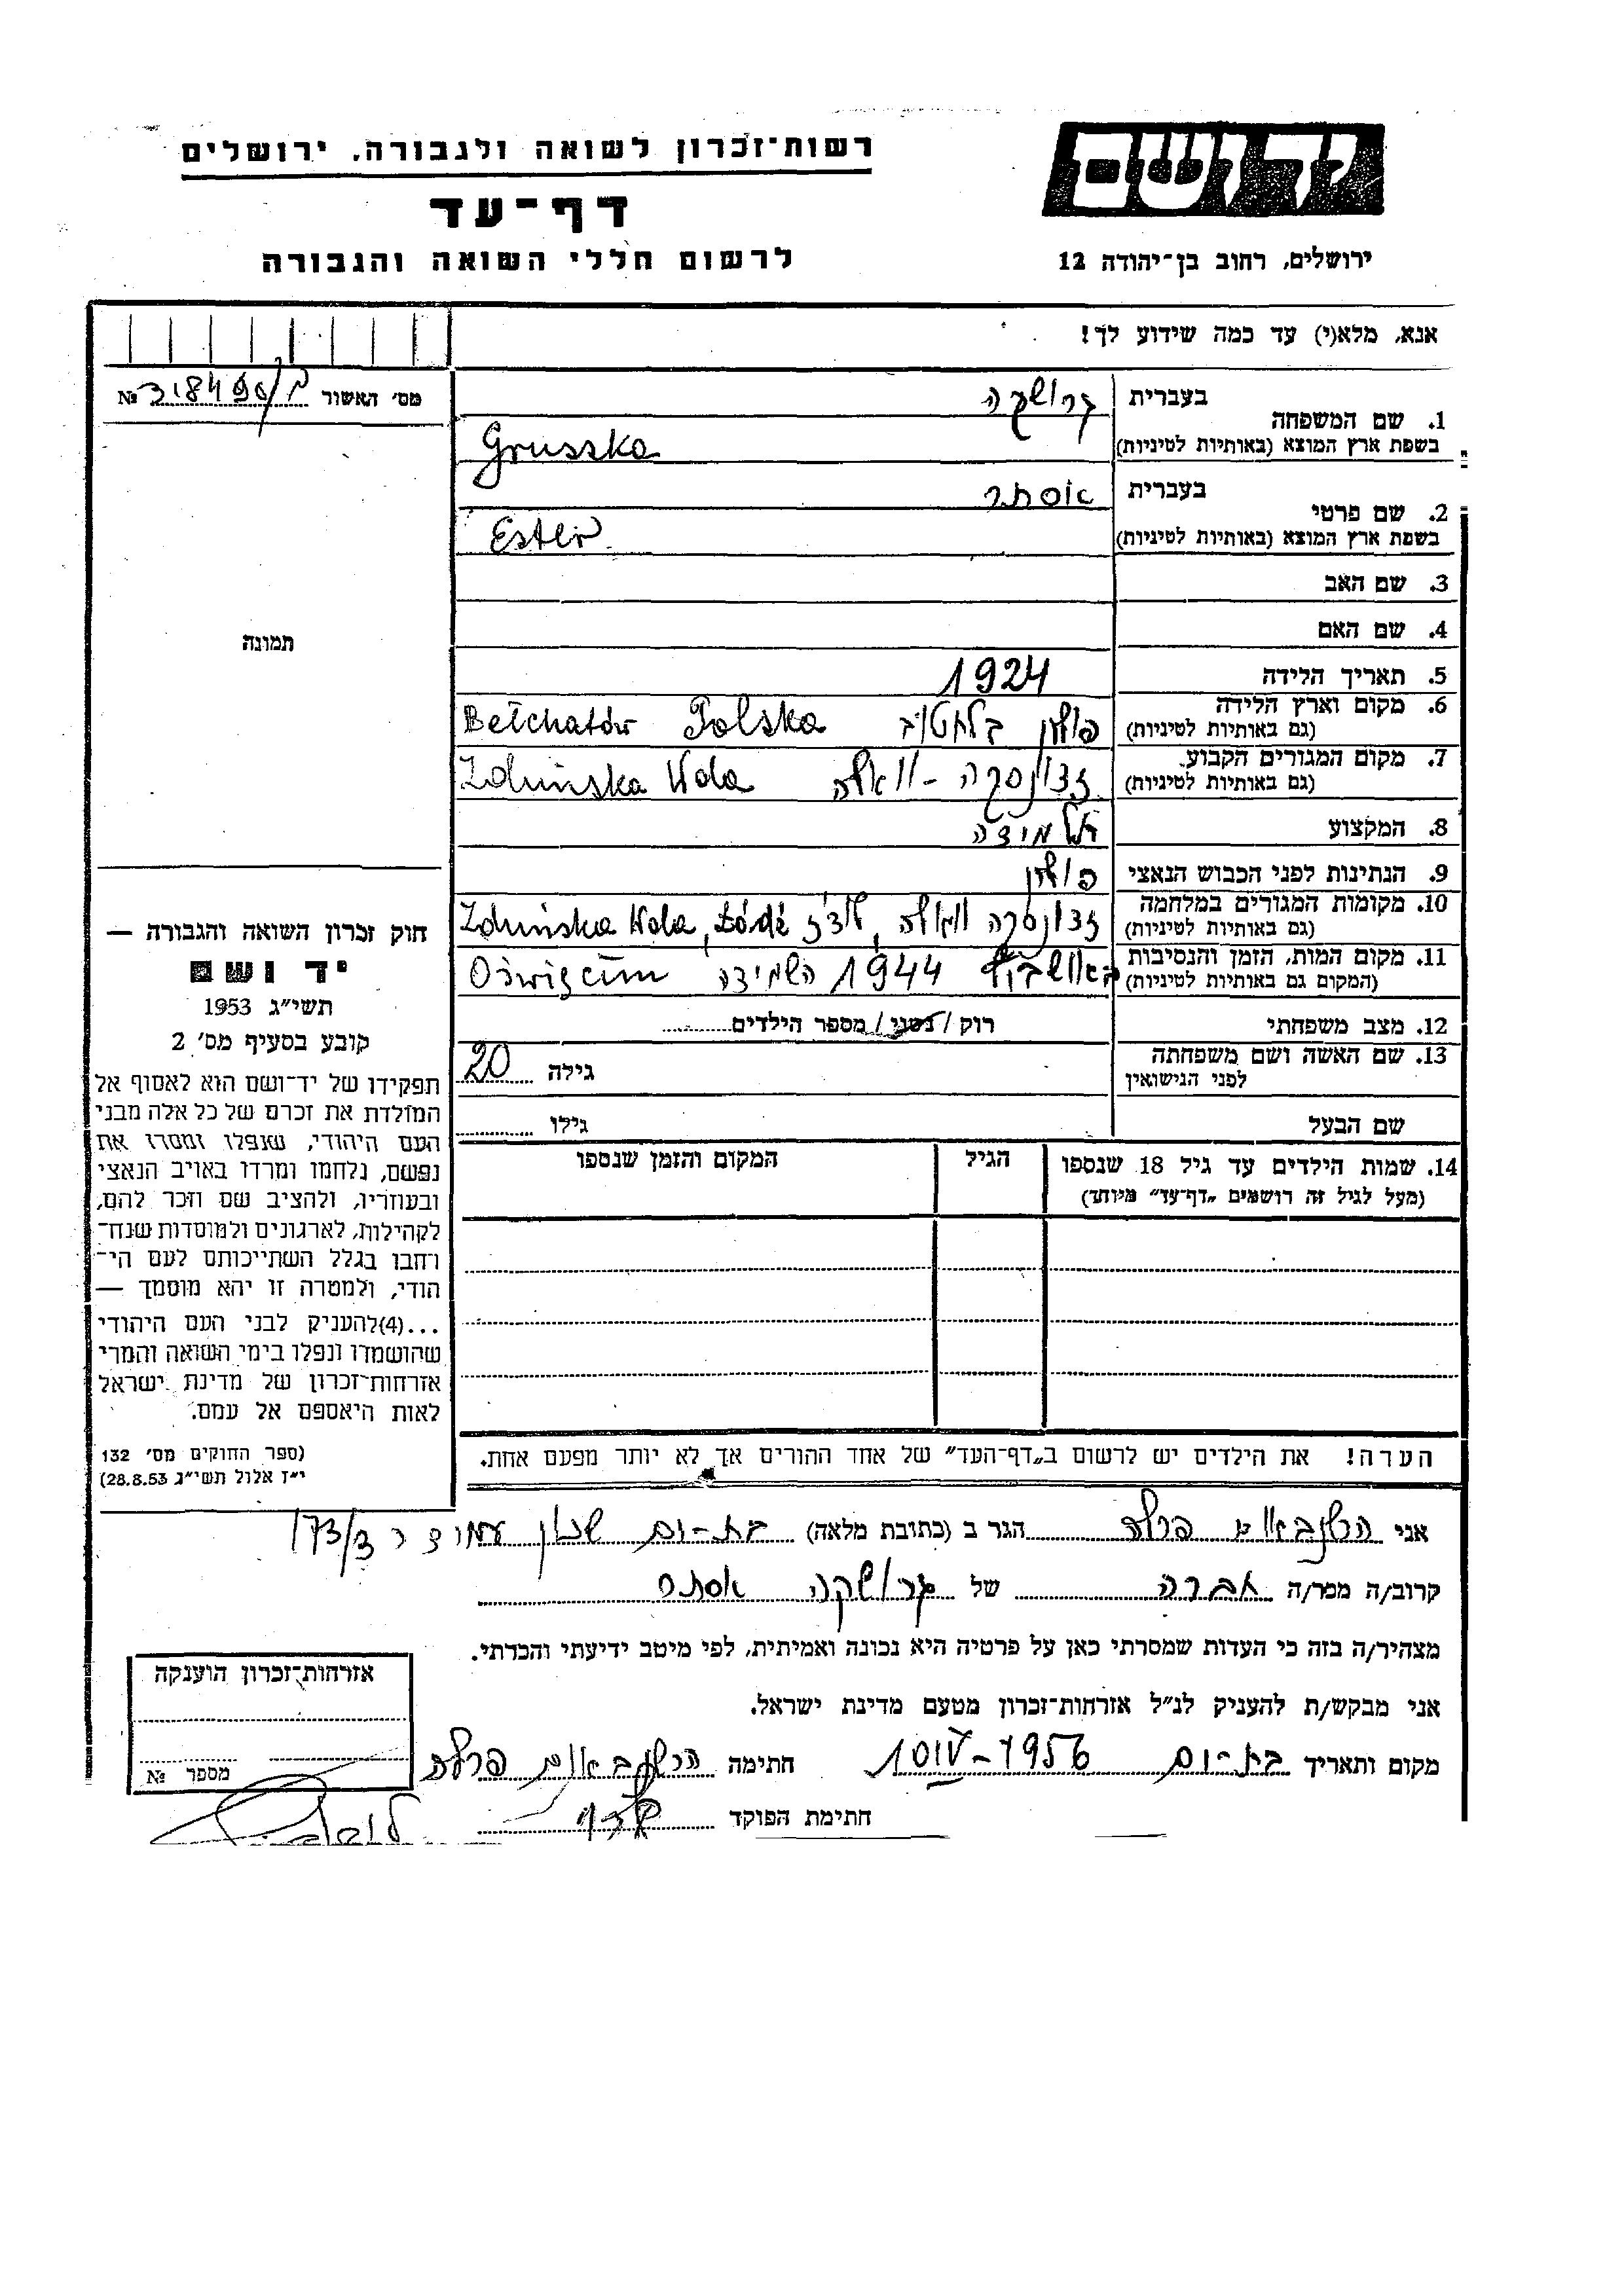 רשות־זכרון לשואה ולגבורה, ירושלים
יד ושם
דף־עד
לרשום חללי השואה והגבורה
ירושלים, רחוב בן־יהודה 12
אנא, מלא(י) עד כמה שידוע לך!
מס׳ האשור №
1. שם המשפחה בעברית גרושקה
בשפת ארץ המוצא (באותיות לטיניות) Gruszka
2. שם פרטי בעברית אסתר
בשפת ארץ המוצא (באותיות לטיניות) Ester
3. שם האב
4. שם האם
5. תאריך הלידה 1924
6. מקום וארץ הלידה (גם באותיות לטיניות) פולין בלחטוב Bełchatów Polska
7. מקום המגורים הקבוע (גם באותיות לטיניות) זדונסקה-וואלה Zduńska Wola
8. המקצוע תלמידה
9. הנתינות לפני הכבוש הנאצי פולין
10. מקומות המגורים במלחמה (גם באותיות לטיניות) זדונסקה וואלה, לודז׳ Zduńska Wola, Łódź
11. מקום המות, הזמן והנסיבות (המקום גם באותיות לטיניות) באושביץ 1944 השמידה Oświęcim
12. מצב משפחתי רוק / נשוי / מספר הילדים
13. שם האשה ושם משפחתה לפני הנישואין גילה 20
שם הבעל גילו
14. שמות הילדים עד גיל 18 שנספו הגיל המקום והזמן שנספו
(מעל לגיל זה רושמים „דף־עד״ מיוחד)
הערה! את הילדים יש לרשום ב„דף־העד״ של אחד ההורים אך לא יותר מפעם אחת.
תמונה
חוק זכרון השואה והגבורה —
יד ושם
תשי״ג 1953
קובע בסעיף מס׳ 2
תפקידו של יד־ושם הוא לאסוף אל
המולדת את זכרם של כל אלה מבני
העם היהודי, שנפלו ומסרו את
נפשם, נלחמו ומרדו באויב הנאצי
ובעוזריו, ולהציב שם וזכר להם,
לקהילות, לארגונים ולמוסדות שנח־
רחבו בגלל השתייכותם לעם הי־
הודי, ולמטרה זו יהא מוסמך —
...(4)להעניק לבני העם היהודי
שהושמדו ונפלו בימי השואה והמרי
אזרחות־זכרון של מדינת ישראל
לאות היאספם אל עמם.
(ספר החוקים מס׳ 132
י״ז אלול תשי״ג 28.8.53)
אני הרשנבאום פרלה הגר ב (כתובת מלאה) בת-ים שכון עמידר 173/3
קרוב/ה מכר/ה חברה של גרושקה אסתר
מצהיר/ה בזה כי העדות שמסרתי כאן על פרטיה היא נכונה ואמיתית, לפי מיטב ידיעתי והכרתי.
אני מבקש/ת להעניק לנ״ל אזרחות־זכרון מטעם מדינת ישראל.
מקום ותאריך בת-ים חתימה הרשנבאום פרלה
חתימת הפוקד
אזרחות־זכרון הוענקה
מספר №